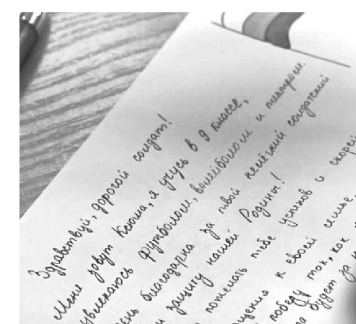 Здравствуй, дорогой солдат!
Меня зовут Ксюша, я учусь в 9 классе,
увлекаюсь футболом, волейболом и театром.
благодарна за твой нелёгкий солдатский
защиту нашей Родины!
пожелать тебе успехов и скорей
к своей семье.
победу так, как
будет за